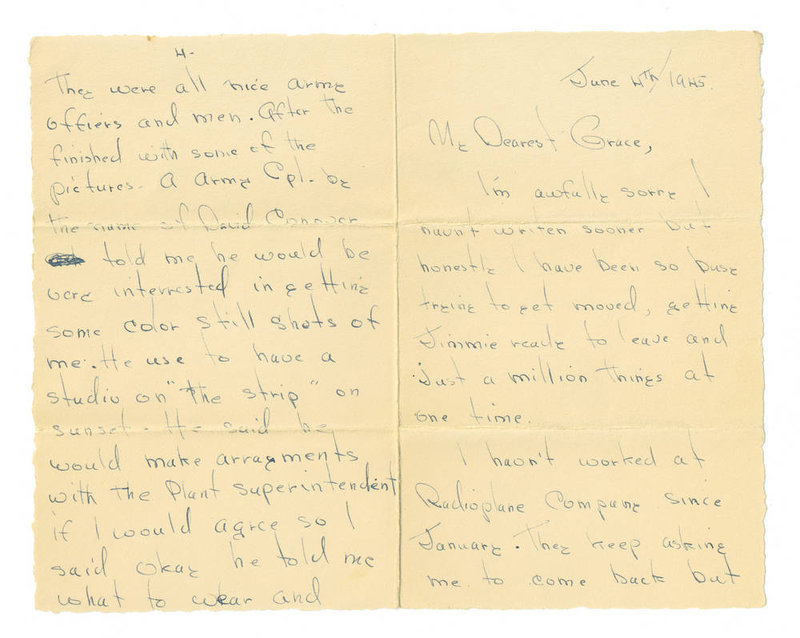 4-
They were all nice army
offiers and men. After the
finished with some of the
pictures. a army Cpl. by
the name of David Conover
told me he would be
very interrested in getting
some color still shots of
me. He use to have a
studio on "the strip" on
sunset. He said he
would make arragments
with the Plant superintendent
if I would agree so I
said okay he told me
what to wear and
June 4th/1945.
My Dearest Grace,
I'm awfully sorry I
havn't writen sooner but
honestly I have been so busy
trying to get moved, getting
Jimmie ready to leave and
just a million things at
one time.
I havn't worked at
Radioplane Company since
January. They keep asking
me to come back but